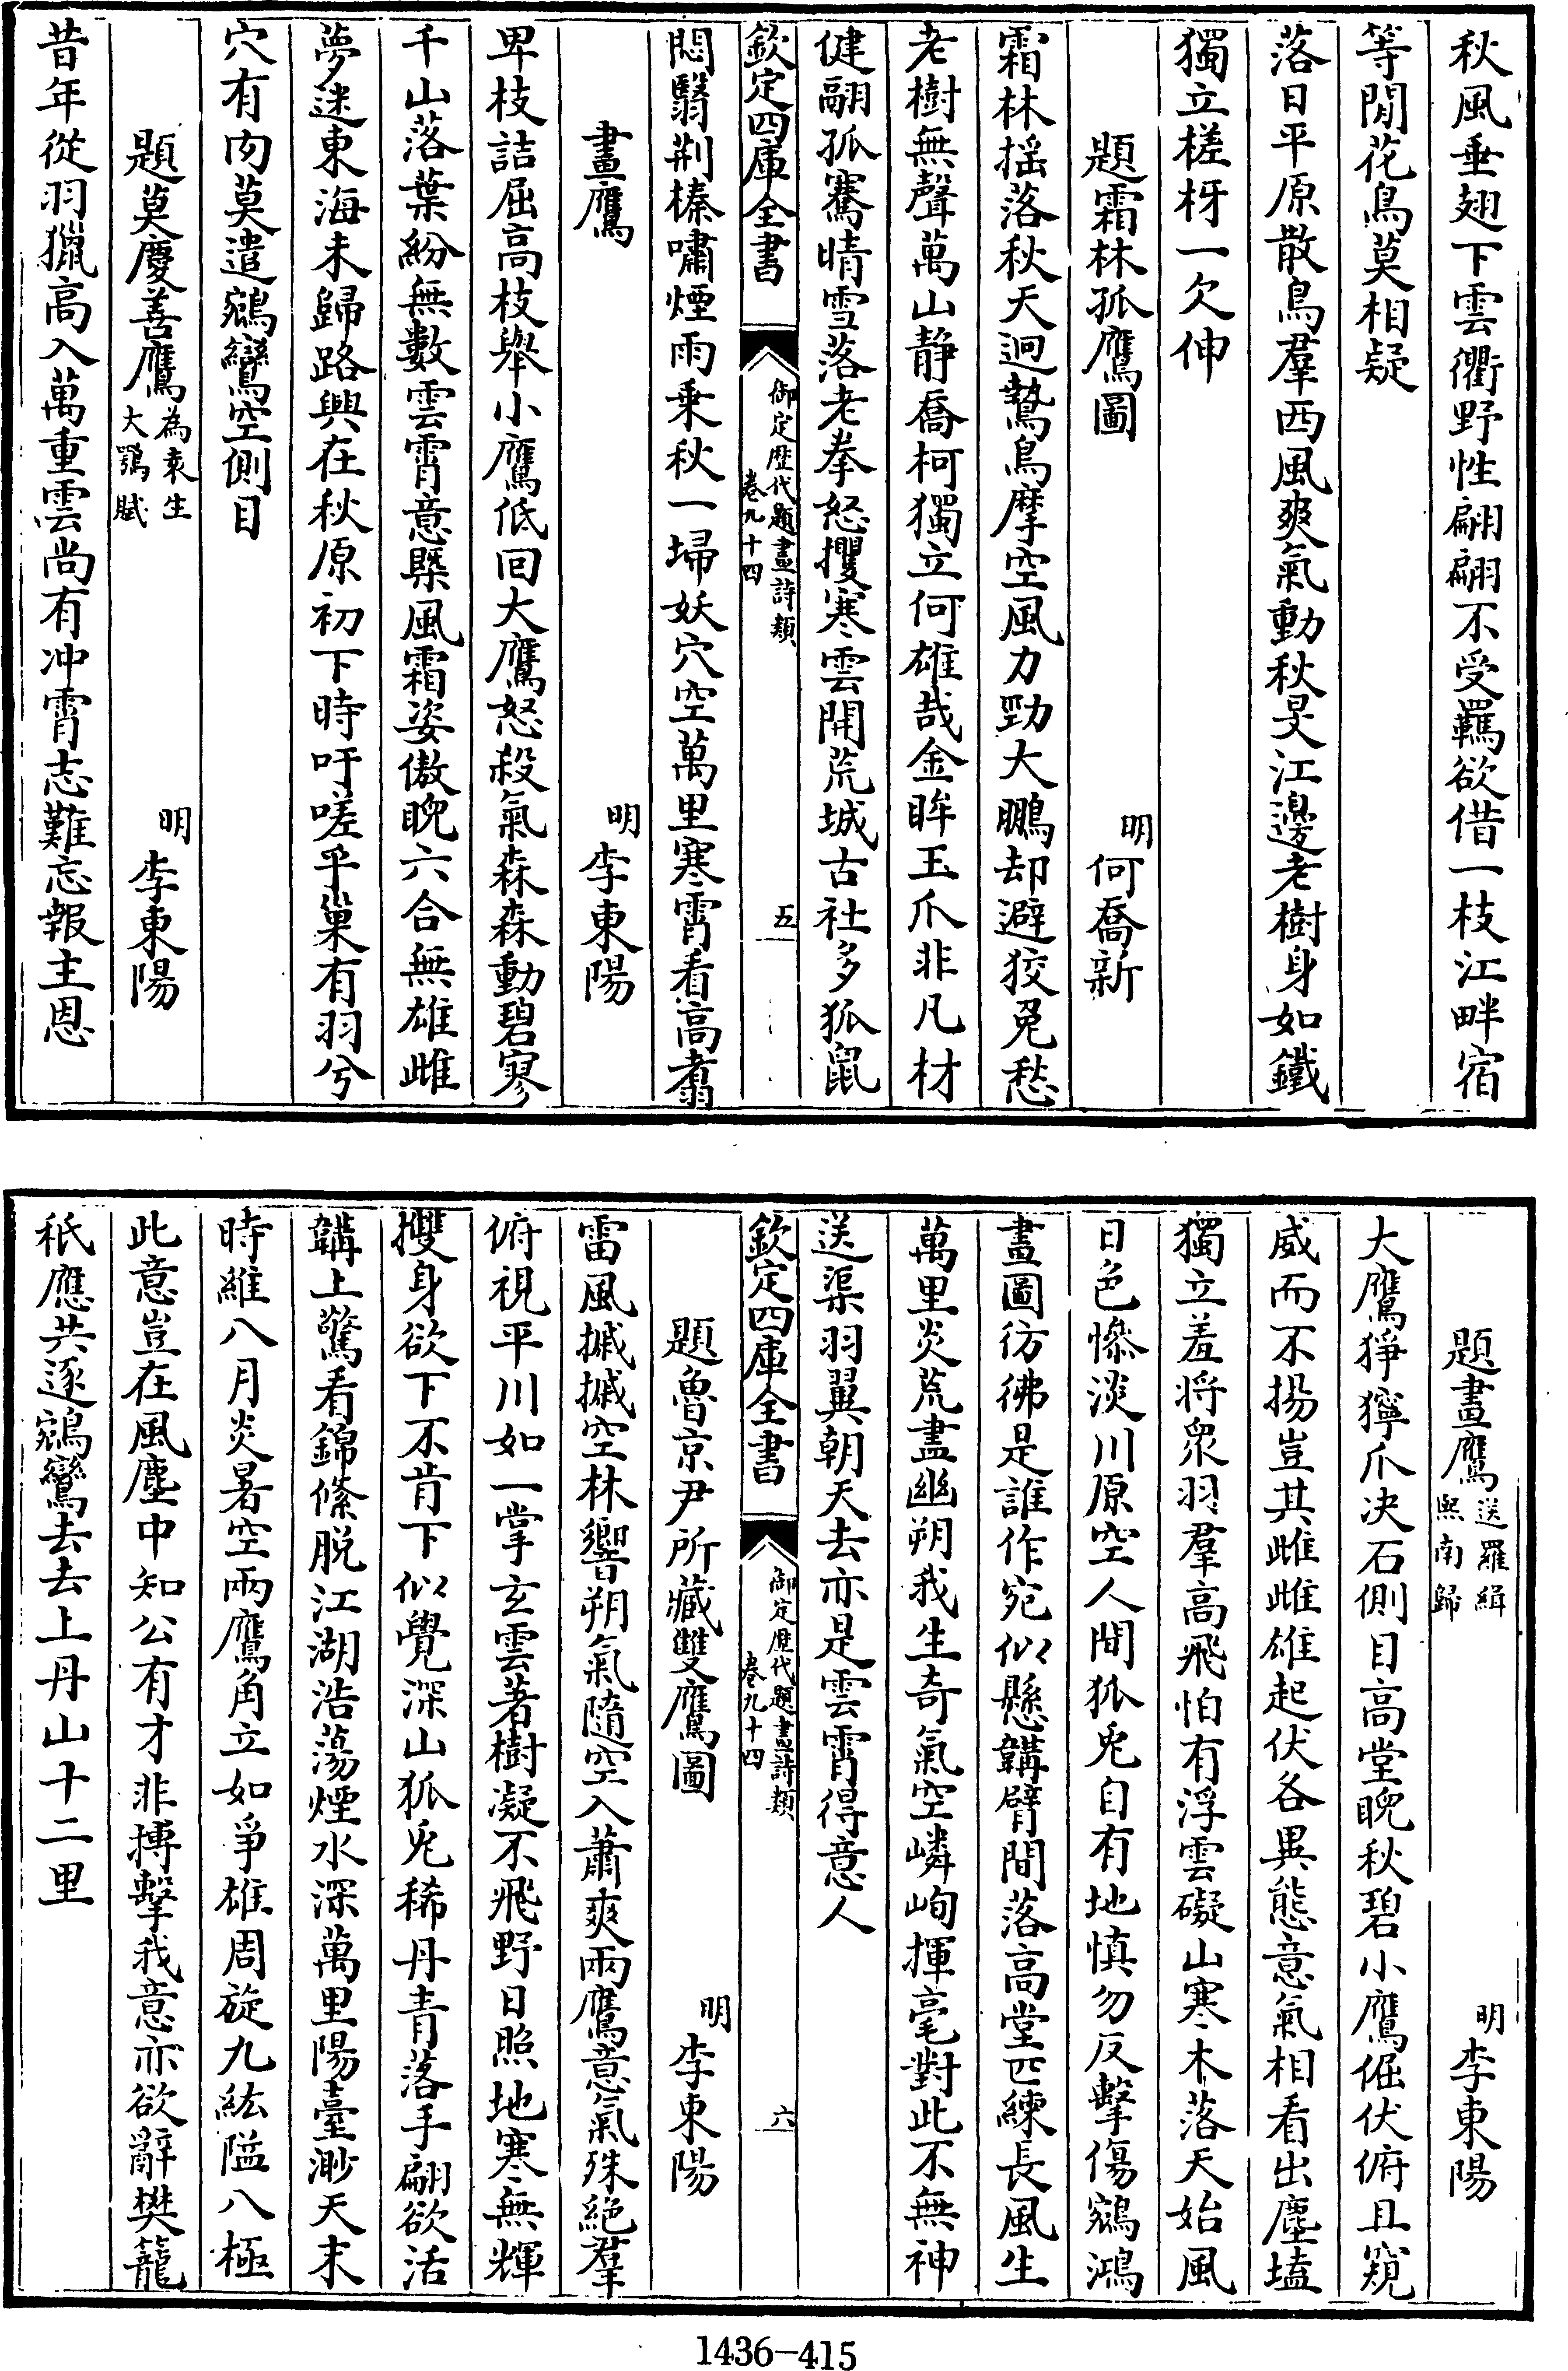 秋風垂翅下雲衢野性翩翩不受羈欲借一枝江畔宿
等閒花鳥莫相疑
落日平原散鳥羣西風爽氣動秋旻江邊老樹身如鐵
獨立槎枒一欠伸
題霜林孤鷹圖
明
何喬新
霜林搖落秋天迥鷙鳥摩空風力勁大鵬却避狡兔愁
老樹無聲萬山静喬柯獨立何雄哉金眸玉爪非凡材
健翮孤騫晴雪落老拳怒攫寒雲開荒城古社多狐鼠
欽定四庫全書
御定歴代題畫詩類
卷九十四
五
悶翳荆榛嘯煙雨乗秋一埽妖穴空萬里寒霄看高翥
畫鷹
明
李東陽
卑枝詰屈高枝舉小鷹低回大鷹怒殺氣森森動碧寥
千山落葉紛無數雲霄意槩風霜姿傲睨六合無雄雌
夢迷東海未歸路興在秋原初下時吁嗟乎巢有羽兮
穴有肉莫遣鵷鸞空側目
題莫慶善鷹
為袁生
大鶚賦
明
李東陽
昔年從羽獵高入萬重雲尚有冲霄志難忘報主恩
題畫鷹
送羅緝
熙南歸
明
李東陽
大鷹猙獰爪决石側目高堂睨秋碧小鷹倔伏俯且窺
威而不揚豈其雌雌雄起伏各異態意氣相看出塵壒
獨立羞将衆羽羣高飛怕有浮雲礙山寒木落天始風
日色慘淡川原空人間狐兎自有地慎勿反擊傷鵷鴻
畫圖彷彿是誰作宛似懸韝臂間落高堂匹練長風生
萬里炎荒盡幽朔我生奇氣空嶙峋揮毫對此不無神
送渠羽翼朝天去亦是雲霄得意人
欽定四庫全書
御定歴代題畫詩類
卷九十四
六
題魯京尹所藏雙鷹圖
明
李東陽
雷風摵摵空林響朔氣隨空入蕭爽兩鷹意氣殊絶羣
俯視平川如一掌玄雲著樹凝不飛野日照地寒無輝
㩳身欲下不肯下似覺深山狐兎稀丹青落手翩欲活
韝上驚看錦絛脱江湖浩蕩煙水深萬里陽臺渺天末
時維八月炎暑空兩鷹角立如爭雄周旋九紘隘八極
此意豈在風塵中知公有才非搏擊我意亦欲辭樊籠
秖應共逐鵷鸞去去上丹山十二里
1436-415